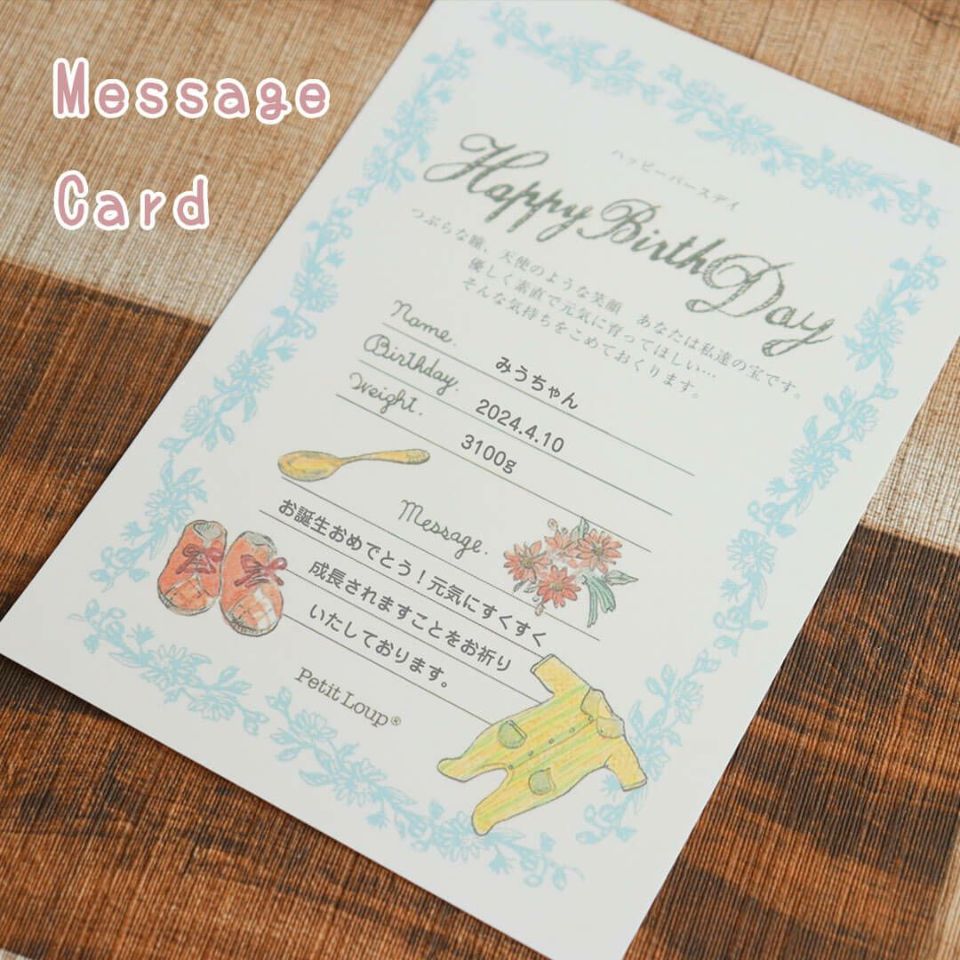 Message
Card
ハッピーバースデイ
Happy Birth Day
つぶらな瞳、天使のような笑顔 あなたは私達の宝です。
優しく素直で元気に育ってほしい…
そんな気持ちをこめておくります。
Name. みうちゃん
Birthday. 2024.4.10
Weight. 3100g
Message.
お誕生おめでとう！元気にすくすく
成長されますことをお祈り
いたしております。
Petit Loup®